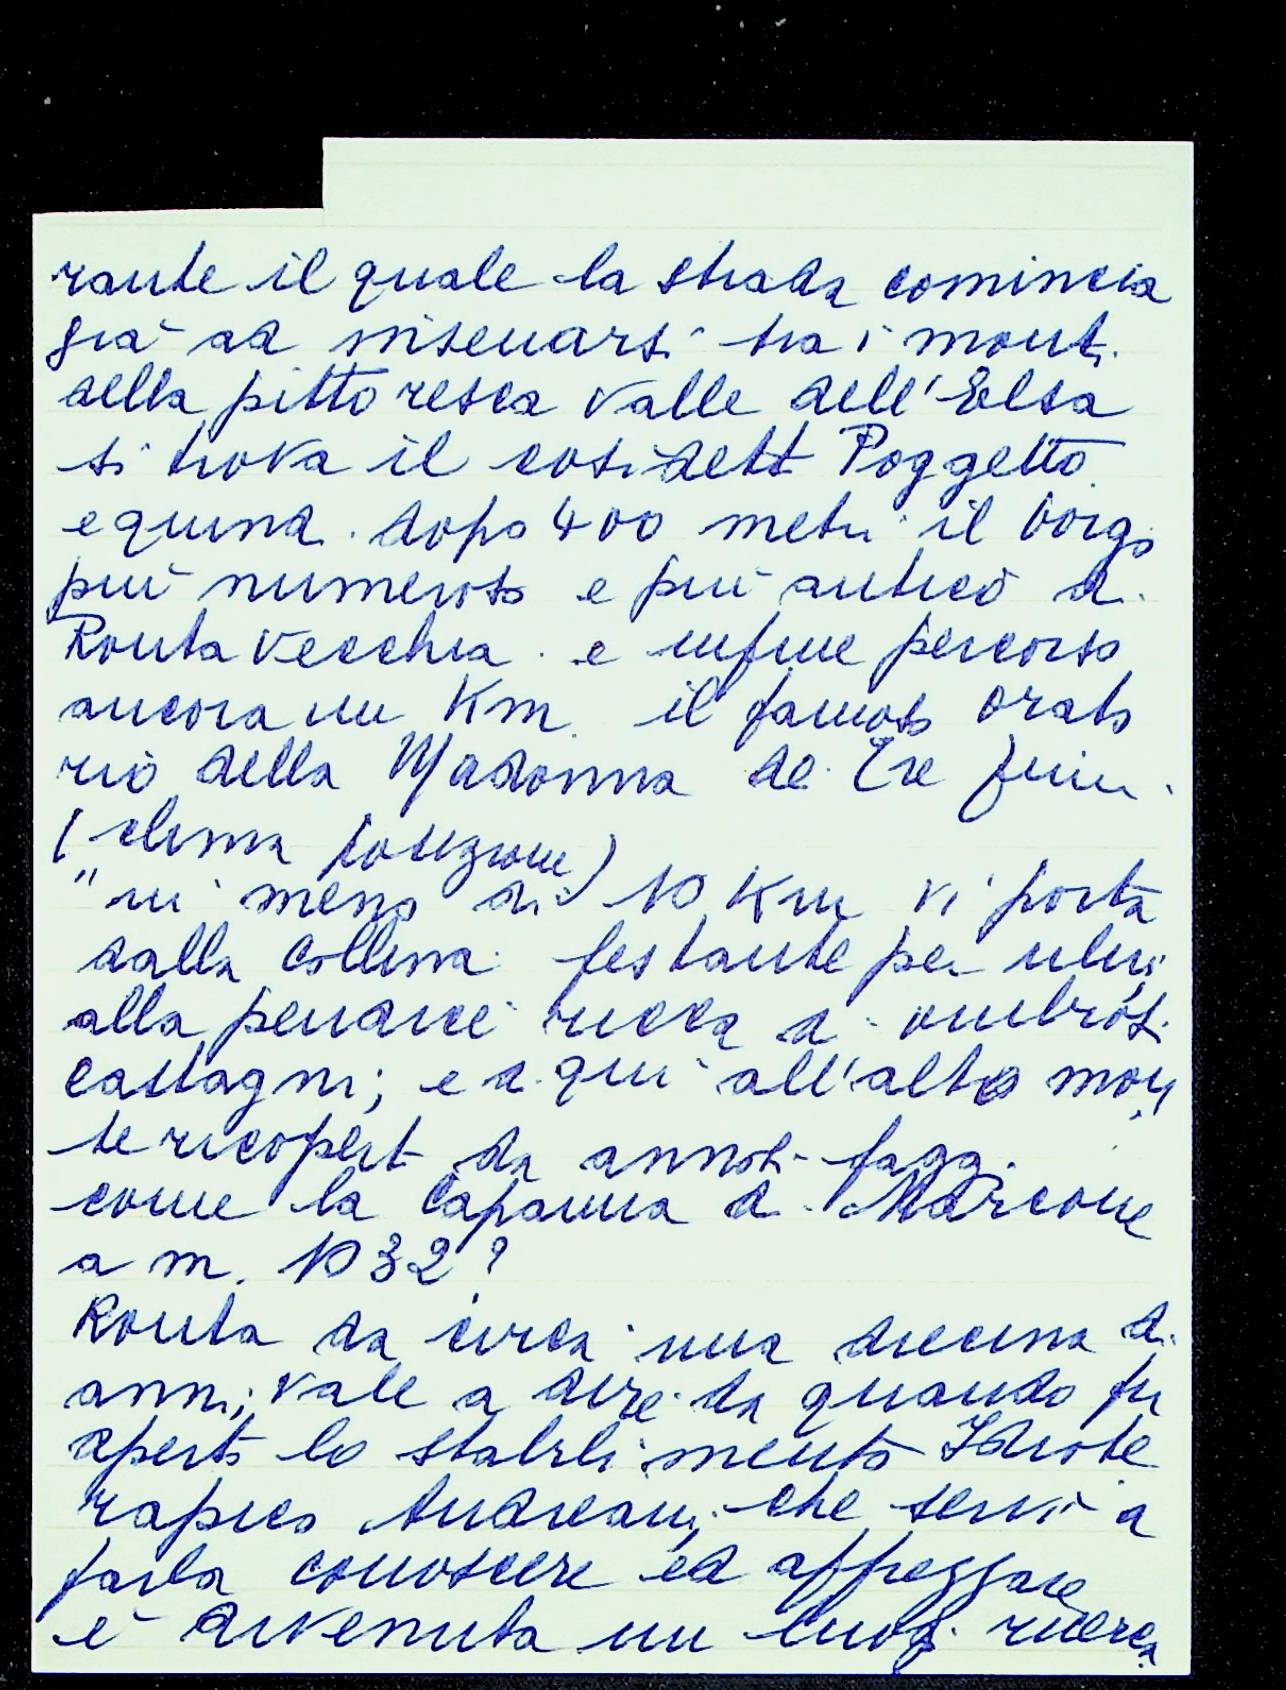 rante il quale la strada comincia
già ad insenarsi tra i monti
della pittoresca valle dell'Elsa
si trova il cosidett Poggetto
e quindi dopo 400 metri il borgo
più numeroso e più antico di
Ronta vecchia e infine percorso
ancora un Km. il famoso orato
rio della Madonna de Tre fiumi.
(clima posizione)
"in meno di 10 Km vi porta
dalla collina festante per ulivi
alla pendice ricca di ombrosi
castagni; e di qui all'alto mon
te ricopert da annosi faggi
come la Capanna di Marcone
a m. 1032?
Ronta da circa una diecina di
anni; vale a dire da quando fu
aperto lo stabilimento Idrote
rapico Andreani, che servì a
farla conoscere ed apprezzare
è divenuta un luogo ricerca